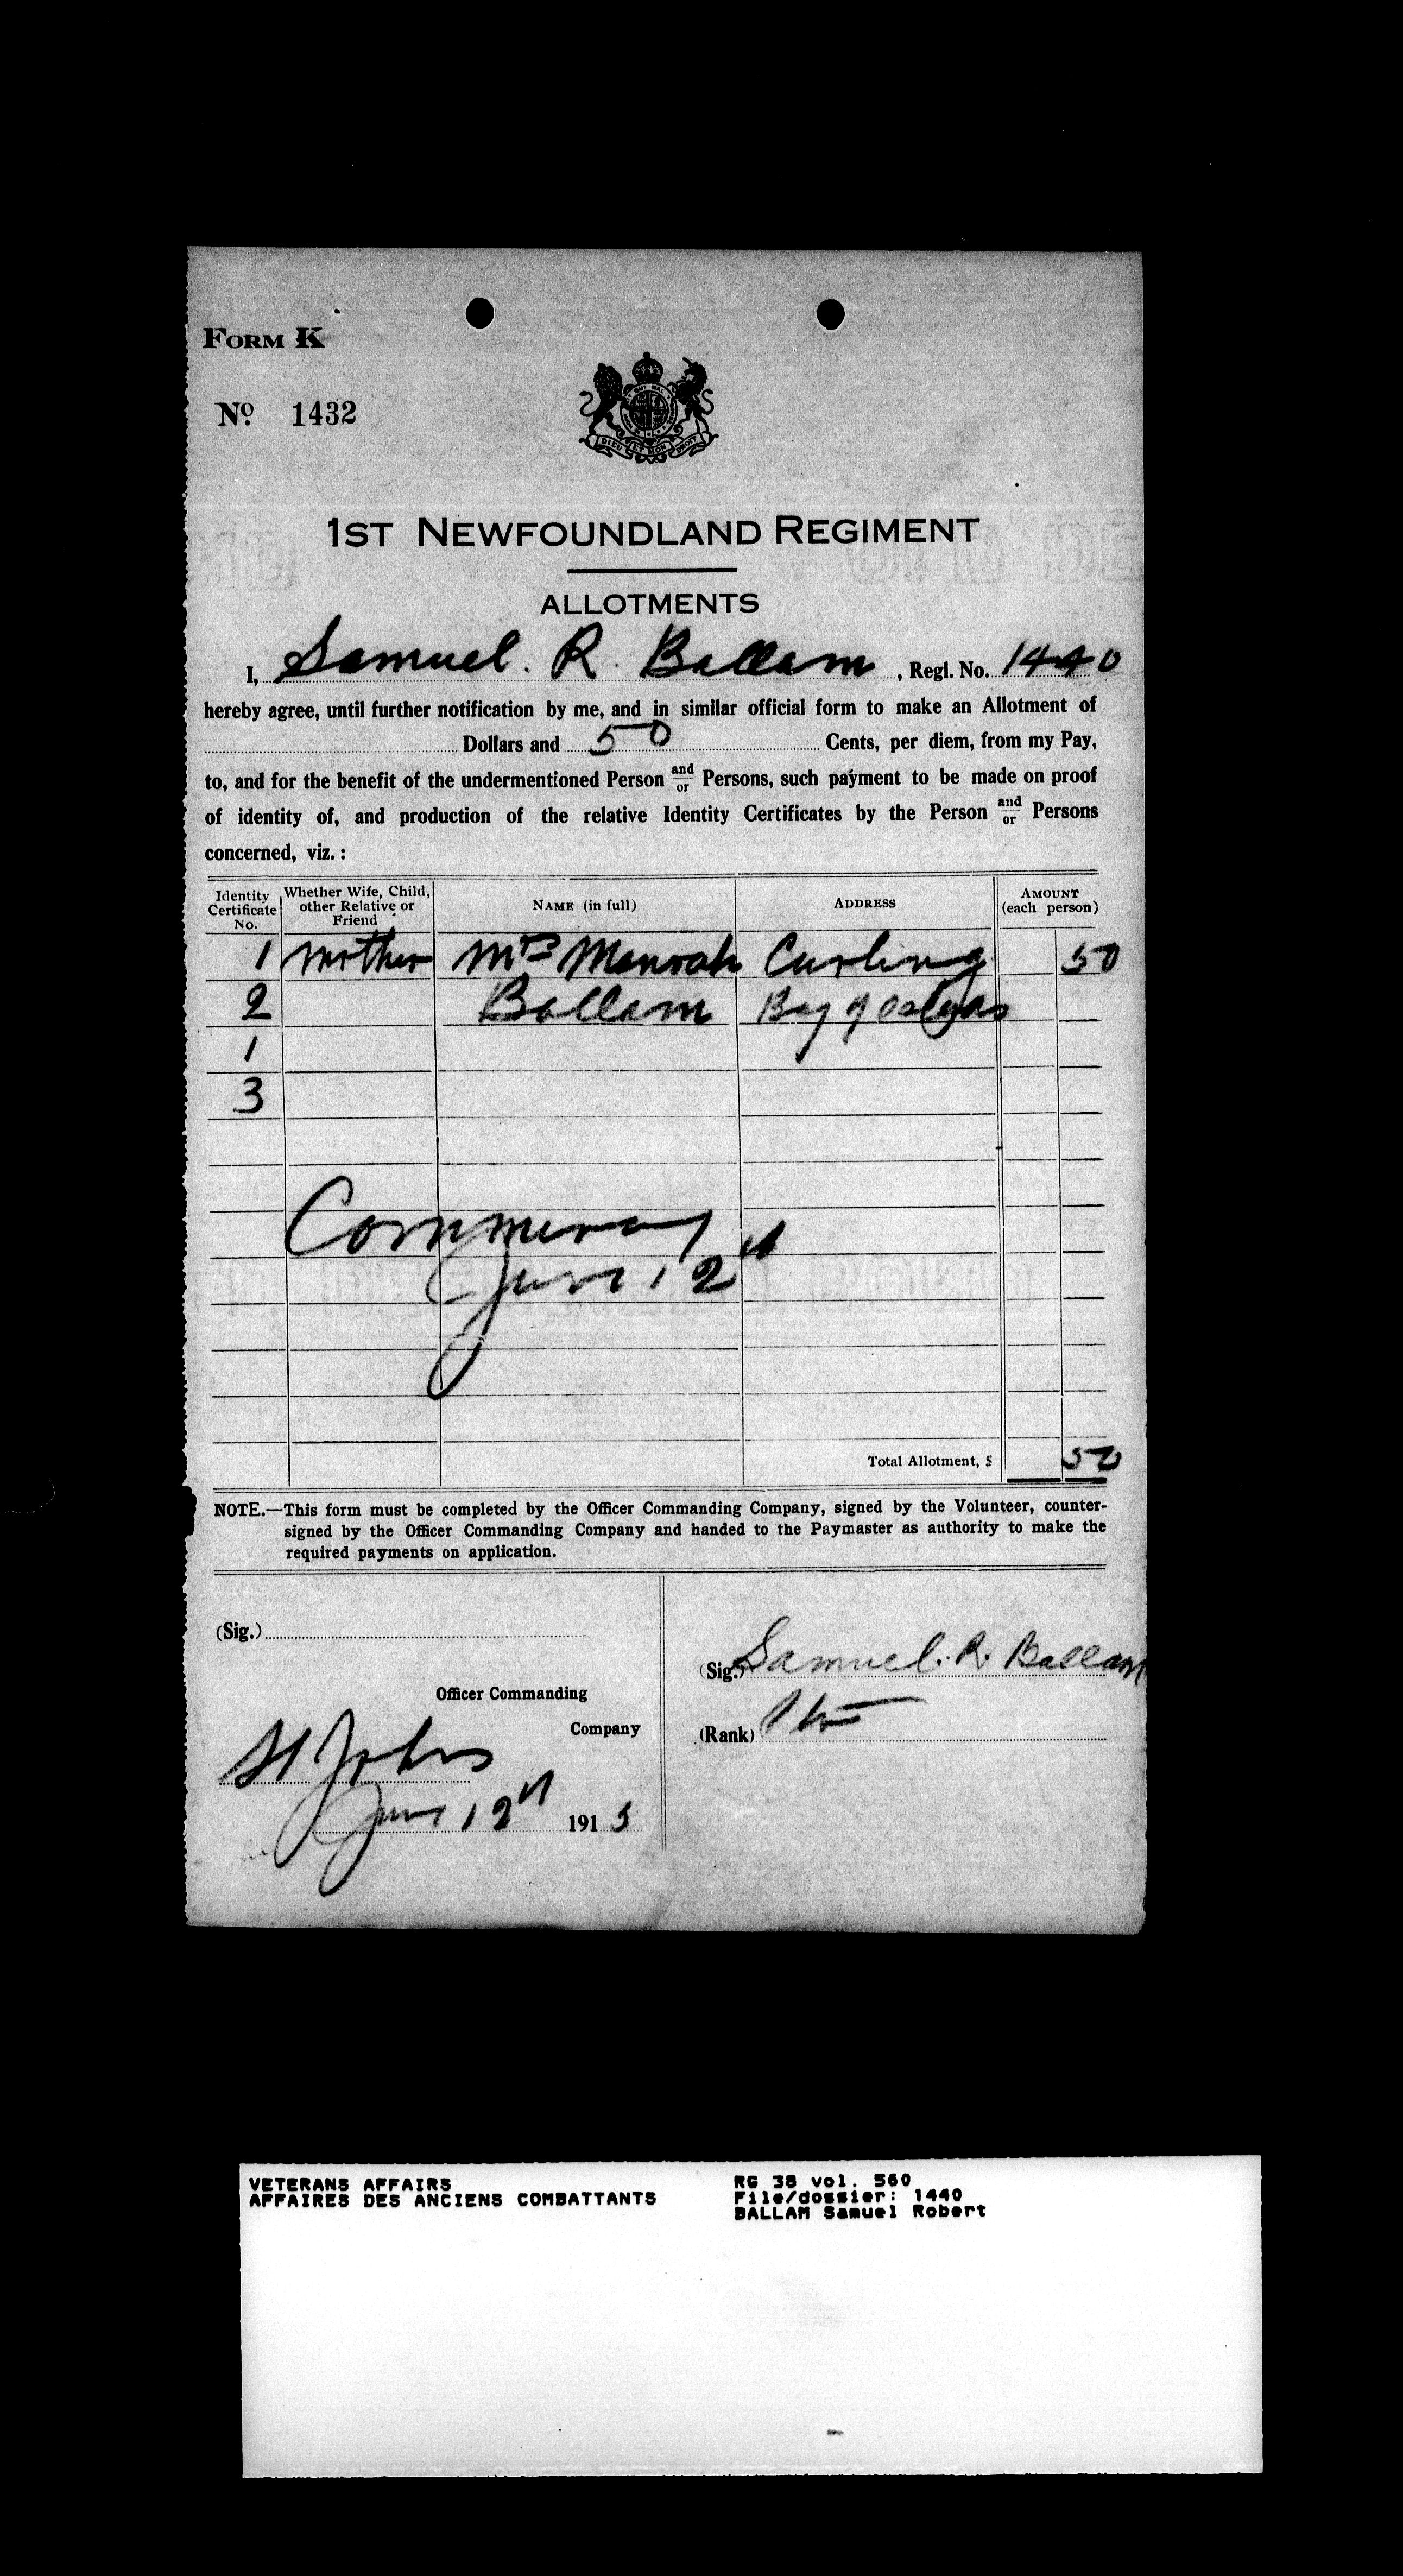 FORM K
No. 1432
DIEU ET MON DROIT
1ST NEWFOUNDLAND REGIMENT
ALLOTMENTS
I, Samuel. R. Ballam, Regl. No. 1440
hereby agree, until further notification by me, and in similar official form to make an Allotment of
Dollars and 50 Cents, per diem, from my Pay,
to, and for the benefit of the undermentioned Person and/or Persons, such payment to be made on proof
of identity of, and production of the relative Identity Certificates by the Person and/or Persons
concerned, viz. :
Identity Certificate No. Whether Wife, Child, other Relative or Friend NAME (in full) ADDRESS AMOUNT (each person)
1 Mother Mrs Curling 50
2 Ballam Bay of
1
3
June 12th
Total Allotment, $ 50
NOTE.—This form must be completed by the Officer Commanding Company, signed by the Volunteer, counter-
signed by the Officer Commanding Company and handed to the Paymaster as authority to make the
required payments on application.
(Sig.)
(Sig.) Samuel. R. Ballam
Officer Commanding
Company
(Rank) Pte
St Johns
June 12th 1915
VETERANS AFFAIRS
AFFAIRES DES ANCIENS COMBATTANTS
RG 38 vol. 560
File/dossier: 1440
BALLAM Samuel Robert